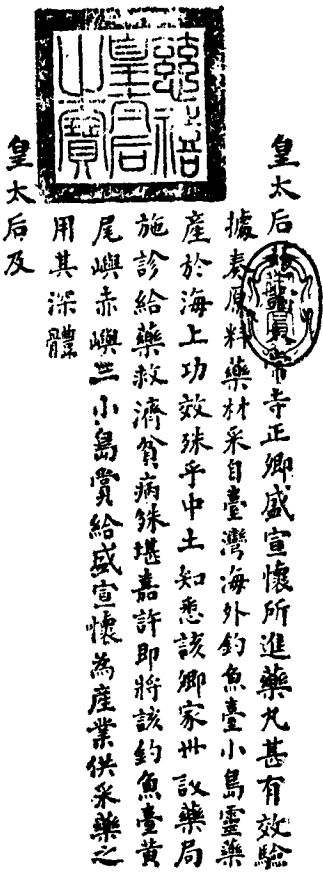 慈禧
皇太后
之寶
皇太后
常寺正卿盛宣懷所進藥丸甚有效驗
據奏原料藥材采自臺灣海外釣魚臺小島靈藥
產於海上功效殊乎中土知悉該卿家世設藥局
施診給藥救濟貧病殊堪嘉許即將該釣魚臺黃
尾嶼赤嶼三小島賞給盛宣懷為產業供采藥之
用其深體
皇太后及